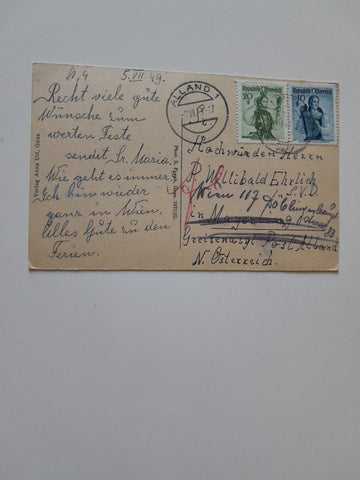 5. VII. 49.
Recht viele gute
Wünsche zum
werten Feste
sendet Sr. Maria.
Wie geht es immer?
Ich bin wieder
ganz in Wien.
Alles Gute zu den
Ferien.
Verlag Anna Uhl,
Phot. S.
ALLAND 1
20
Republik Österreich
40
Republik Österreich
Hochwürden Herrn
P. Willibald Ehrlich
S.V.D.
Wien 117
in
Post Alland
N. Österreich.